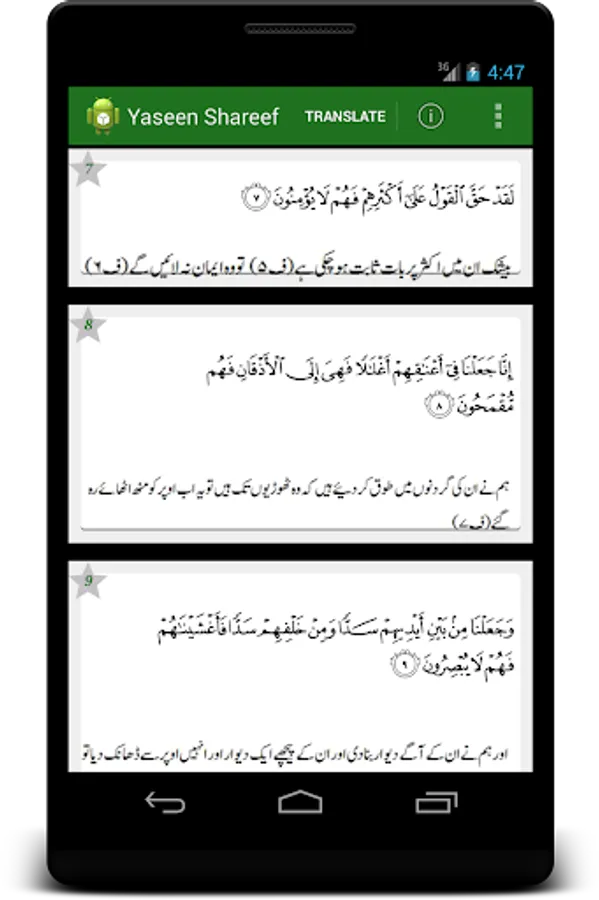 3G 4:47
Yaseen Shareef TRANSLATE
7
لَقَدْ حَقَّ ٱلْقَوْلُ عَلَىٰٓ أَكْثَرِهِمْ فَهُمْ لَا يُؤْمِنُونَ ٧
بیشک ان میں اکثر پر بات ثابت ہوچکی ہے (ف۵) تو وہ ایمان نہ لائیں گے (ف۶)
8
إِنَّا جَعَلْنَا فِىٓ أَعْنَـٰقِهِمْ أَغْلَـٰلًا فَهِىَ إِلَى ٱلْأَذْقَانِ فَهُم
مُّقْمَحُونَ ٨
ہم نے ان کی گردنوں میں طوق کر دیئے ہیں کہ وہ ٹھوڑیوں تک ہیں تو یہ اب اوپر کو منھ اٹھائے رہ
گئے (ف۷)
9
وَجَعَلْنَا مِنۢ بَيْنِ أَيْدِيهِمْ سَدًّا وَمِنْ خَلْفِهِمْ سَدًّا فَأَغْشَيْنَـٰهُمْ
فَهُمْ لَا يُبْصِرُونَ ٩
اور ہم نے ان کے آگے دیوار بنادی اور ان کے پیچھے ایک دیوار اور انہیں اوپر سے ڈھانک دیا تو